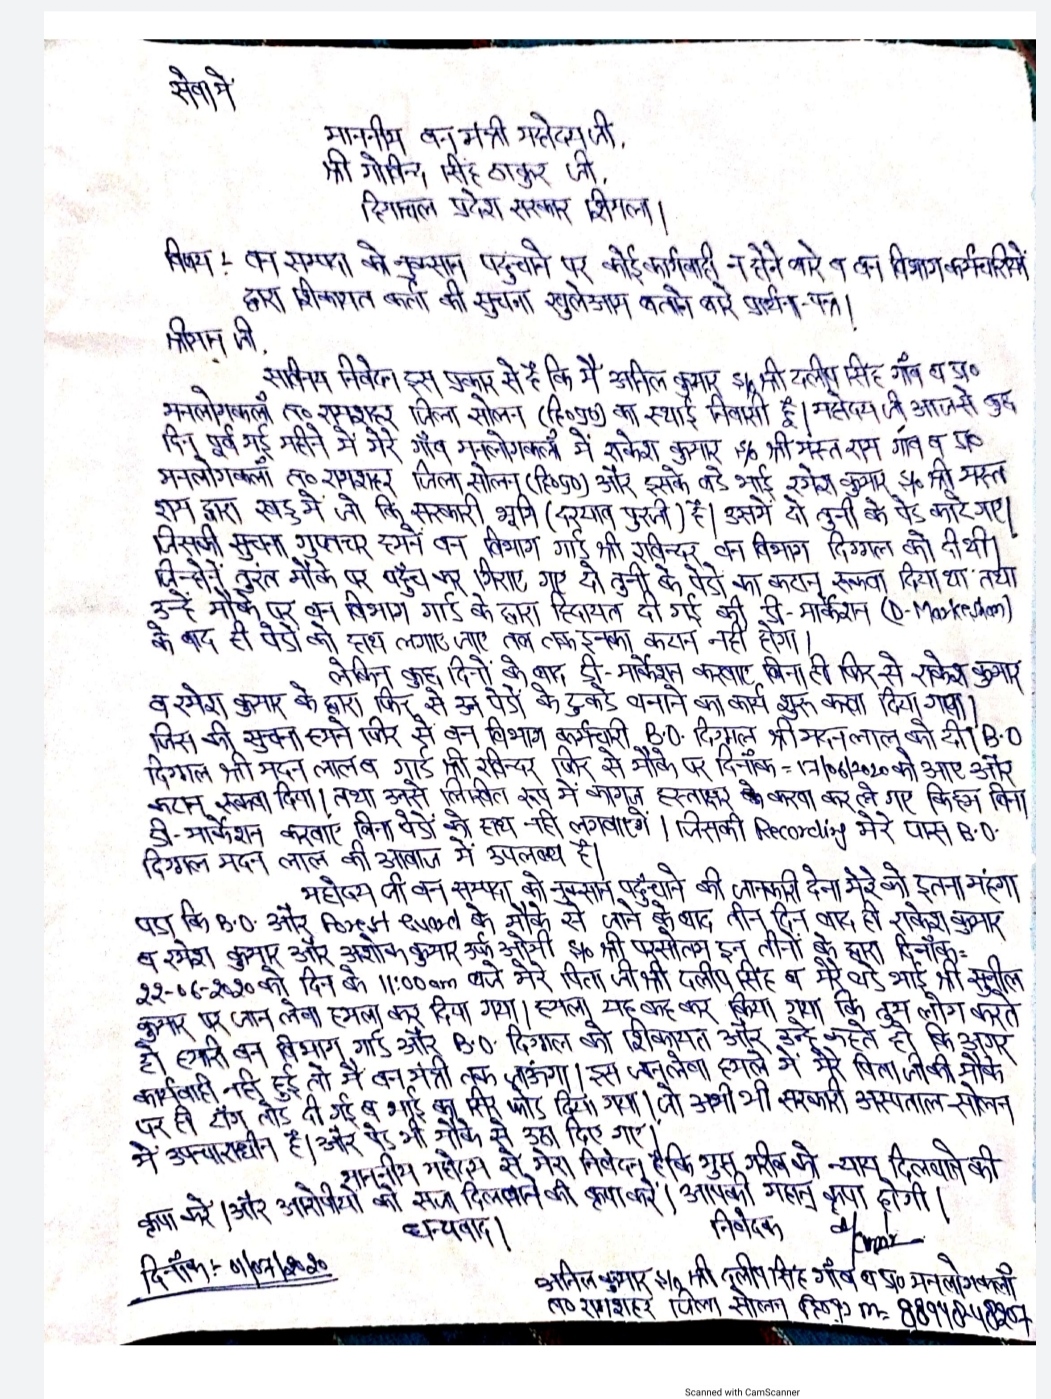 सेवा में
माननीय वन मंत्री महोदय जी,
श्री गोविन्द सिंह ठाकुर जी,
हिमाचल प्रदेश सरकार शिमला।
विषय :- वन सम्पदा को नुक्सान पहुचाने पर कोई कार्यवाही न होने बारे व वन विभाग कर्मचारियों
द्वारा शिकायत कर्ता की सुचना खुलेआम बताने बारे प्रार्थना-पत्र।
श्रीमान जी,
सविनय निवेदन इस प्रकार से है कि मैं अनिल कुमार S/o श्री दलीप सिंह गाँव व प्र०
मनलोगकलाँ त० रामशहर जिला सोलन (हि०प्र०) का स्थाई निवासी हूँ। महोदय जी आज से कुछ
दिन पूर्व मई महिने में मेरे गाँव मनलोगकलाँ में राकेश कुमार S/o श्री मस्त राम गाँव व प्र०
मनलोगकलाँ त० रामशहर जिला सोलन (हि०प्र०) और इसके बडे भाई रमेश कुमार S/o श्री मस्त
राम द्वारा खड्ड में जो कि सरकारी भूमि (दरयात पुरजी) है। उसमें दो तुनी के पेड काटे गए।
जिसकी सुचना गुप्तचर हमने वन विभाग गार्ड श्री रविन्दर वन विभाग दिग्गल को दी थी।
जिन्होनें तुरंत मौके पर पहुँच कर गिराए गए दो तुनी के पेडो का कटान रूकवा दिया था तथा
उन्हें मौके पर वन विभाग गार्ड के द्वारा हिदायत दी गई की डी-मार्केशन (D-Markeshan)
के बाद ही पेडो को हाथ लगाए जाए तब तक इनका कटान नही होगा।
लेकिन कुछ दिनों के बाद डी-मार्केशन करवाए बिना ही फिर से राकेश कुमार
व रमेश कुमार के द्वारा फिर से उन पेडों के टुकडे बनाने का कार्य शुरू करवा दिया गया।
जिस की सुचना हमने फिर से वन विभाग कर्मचारी B.O. दिग्गल श्री मदन लाल को दी। B.O
दिग्गल श्री मदन लाल व गार्ड श्री रविन्दर फिर से मौके पर दिनाँक = 17/06/2020 को आए और
कटान रूकवा दिया। तथा उनसे लिखित रूप में कागज हस्ताक्षर करवा कर ले गए कि हम बिना
डी-मार्केशन करवाए बिना पेडों को हाथ नही लगवाएगें। जिसकी Recording मेरे पास B.O.
दिग्गल मदन लाल की आवाज में उपलब्ध है।
महोदय जी वन सम्पदा को नुक्सान पहुँचाने की जानकारी देना मेरे को इतना महंगा
पडा कि B.O. और Forest Guard के मौके से जाने के बाद तीन दिन बाद ही राकेश कुमार
व रमेश कुमार और अशोक कुमार उर्फ ओमी S/o श्री परसोतम इन तीनों के द्वारा दिनाँक=
22-06-2020 को दिन के 11:00am बजे मेरे पिता जी श्री दलीप सिंह व मेरे बडे भाई श्री सुशील
कुमार पर जान लेवा हमला कर दिया गया। हमला यह कह कर किया गया कि तुम लोग करते
हो हमारी वन विभाग गार्ड और B.O. दिग्गल को शिकायत और उन्हे कहते हो कि अगर
कार्यवाही नही हुई तो मैं वन मंत्री तक जाऊंगा। इस जानलेवा हमले में मेरे पिता जी की मौके
पर ही टाँग तोड दी गई व भाई का सिर फोड दिया गया। जो अभी भी सरकारी अस्पताल सोलन
में उपचाराधीन है। और पेड भी मौके से उठा दिए गए।
माननीय महोदय से मेरा निवेदन है कि मुझ गरीब को न्याय दिलवाने की
कृपा करें। और आरोपीयों को सजा दिलवाने की कृपा करें। आपकी महान् कृपा होगी।
धन्यवाद।
निवेदक
दिनाँक:- 01/07/2020
अनिल कुमार S/o श्री दलीप सिंह गाँव व प्र० मनलोगकलाँ
त० रामशहर जिला सोलन (हि०प्र०) m=
Scanned with CamScanner